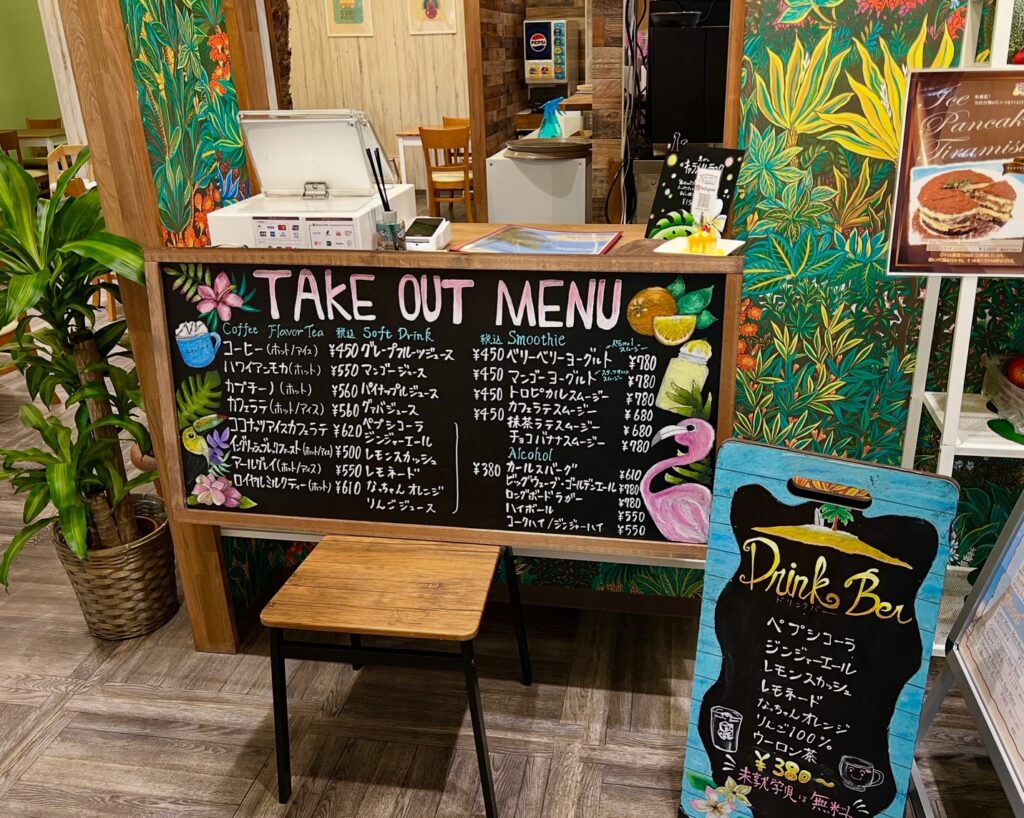 PEPSI
TAKE OUT MENU
Coffee Flavor Tea 税込
コーヒー(ホット/アイス) ¥450
ハワイアンモカ(ホット) ¥550
カプチーノ(ホット) ¥560
カフェラテ(ホット/アイス) ¥560
ココナッツアイスカフェラテ ¥620
イングリッシュブレックファースト(ホット/アイス) ¥500
アールグレイ(ホット/アイス) ¥550
ロイヤルミルクティー(ホット) ¥610
Soft Drink 税込
グレープフルーツジュース ¥450
マンゴージュース ¥450
パイナップルジュース ¥450
グァバジュース ¥450
ペプシコーラ
ジンジャーエール
レモンスカッシュ
レモネード ¥380
なっちゃんオレンジ
りんごジュース
Smoothie
ベリーベリーヨーグルト ¥780
マンゴーヨーグルト ¥780
トロピカルスムージー ¥780
カフェラテスムージー ¥680
抹茶ラテスムージー ¥680
チョコバナナスムージー ¥780
Alcohol
カールスバーグ ¥610
ビッグウェーブ・ゴールデンエール ¥780
ロングボードラガー ¥780
ハイボール ¥550
コークハイ/ジンジャーハイ ¥550
Ice
Pancake
Tiramisu
Drink Ber
ドリンクバー
ペプシコーラ
ジンジャーエール
レモンスカッシュ
レモネード
なっちゃんオレンジ
りんご100%
ウーロン茶
¥380~
未就学児は無料